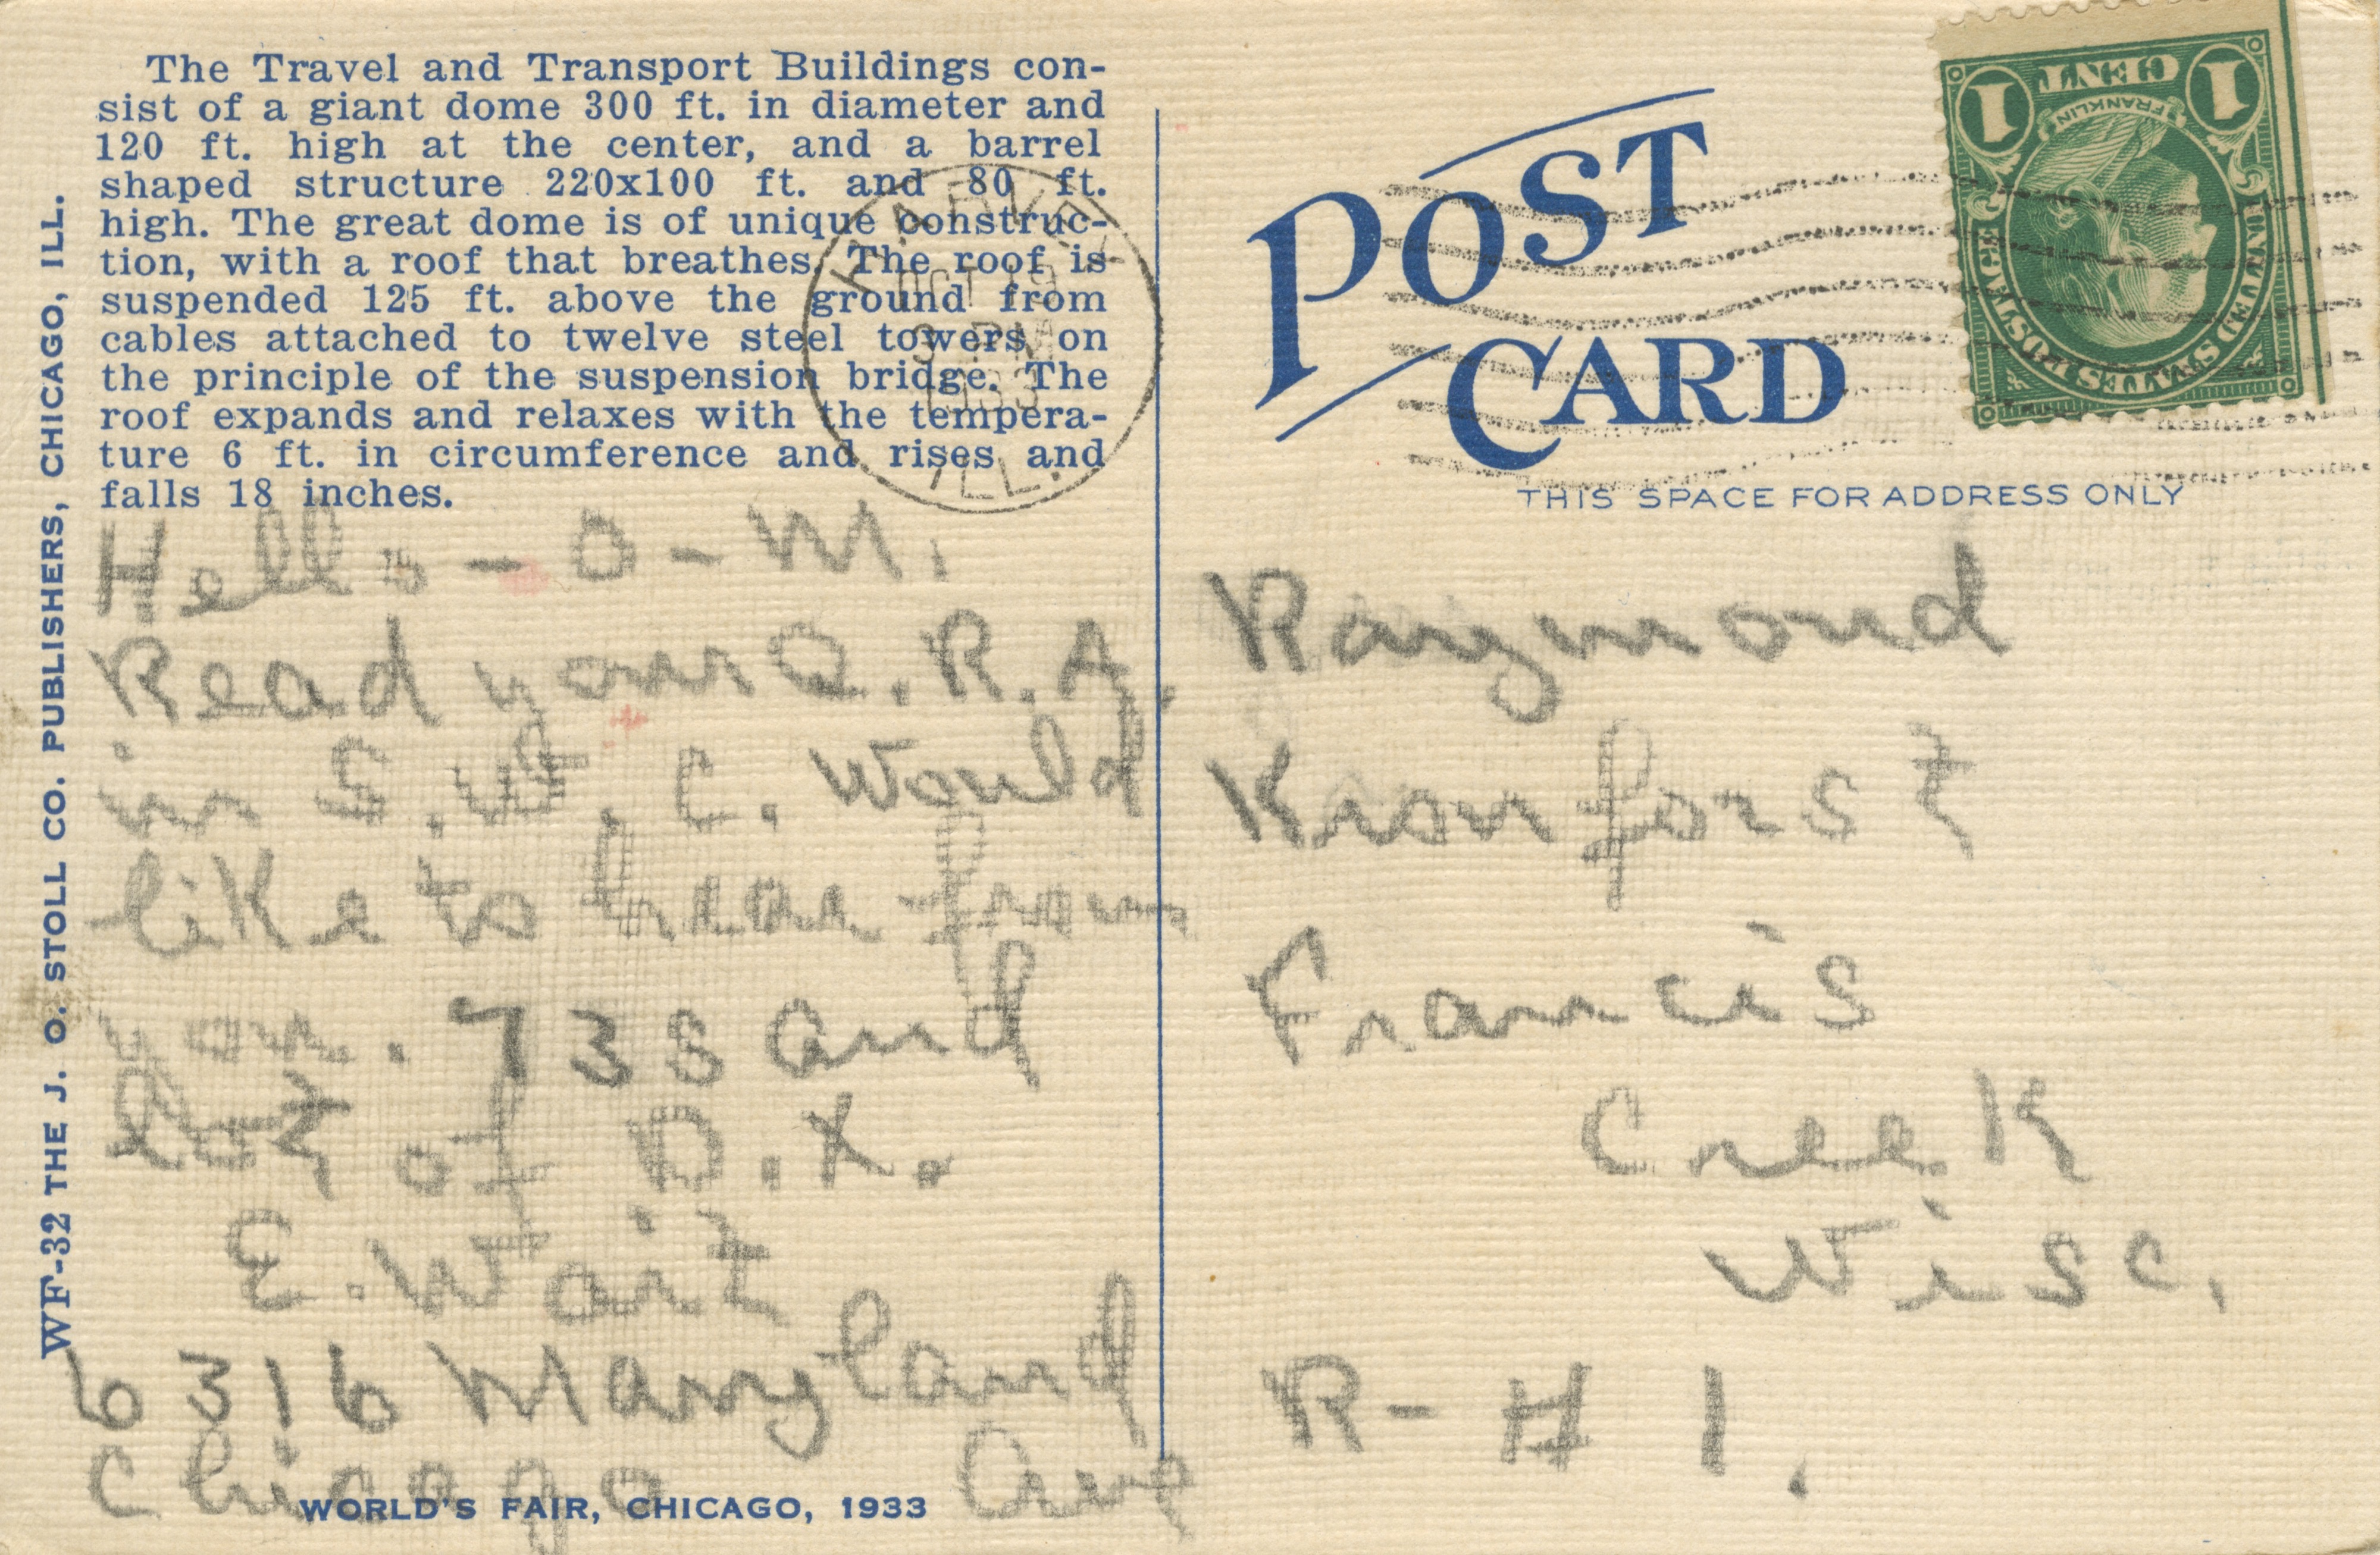 The Travel and Transport Buildings con-
sist of a giant dome 300 ft. in diameter and
120 ft. high at the center, and a barrel
shaped structure 220x100 ft. and 80 ft.
high. The great dome is of unique construc-
tion, with a roof that breathes. The roof is
suspended 125 ft. above the ground from
cables attached to twelve steel towers on
the principle of the suspension bridge. The
roof expands and relaxes with the tempera-
ture 6 ft. in circumference and rises and
falls 18 inches.
WF-32 THE J. O. STOLL CO. PUBLISHERS, CHICAGO, ILL.
Hello - O - M.
Read your Q. R. A.
in S. W. C. Would
like to hear from
you. 73s and
lot of D. X.
E. Wait
6316 Maryland
Chicago Ave
WORLD'S FAIR, CHICAGO, 1933
POST
CARD
THIS SPACE FOR ADDRESS ONLY
HARVEY
OCT 19
PM
ILL.
1 CENT 1
FRANKLIN
UNITED STATES POSTAGE
Raymond
Kronforst
Francis
Creek
Wisc.
R - # 1.